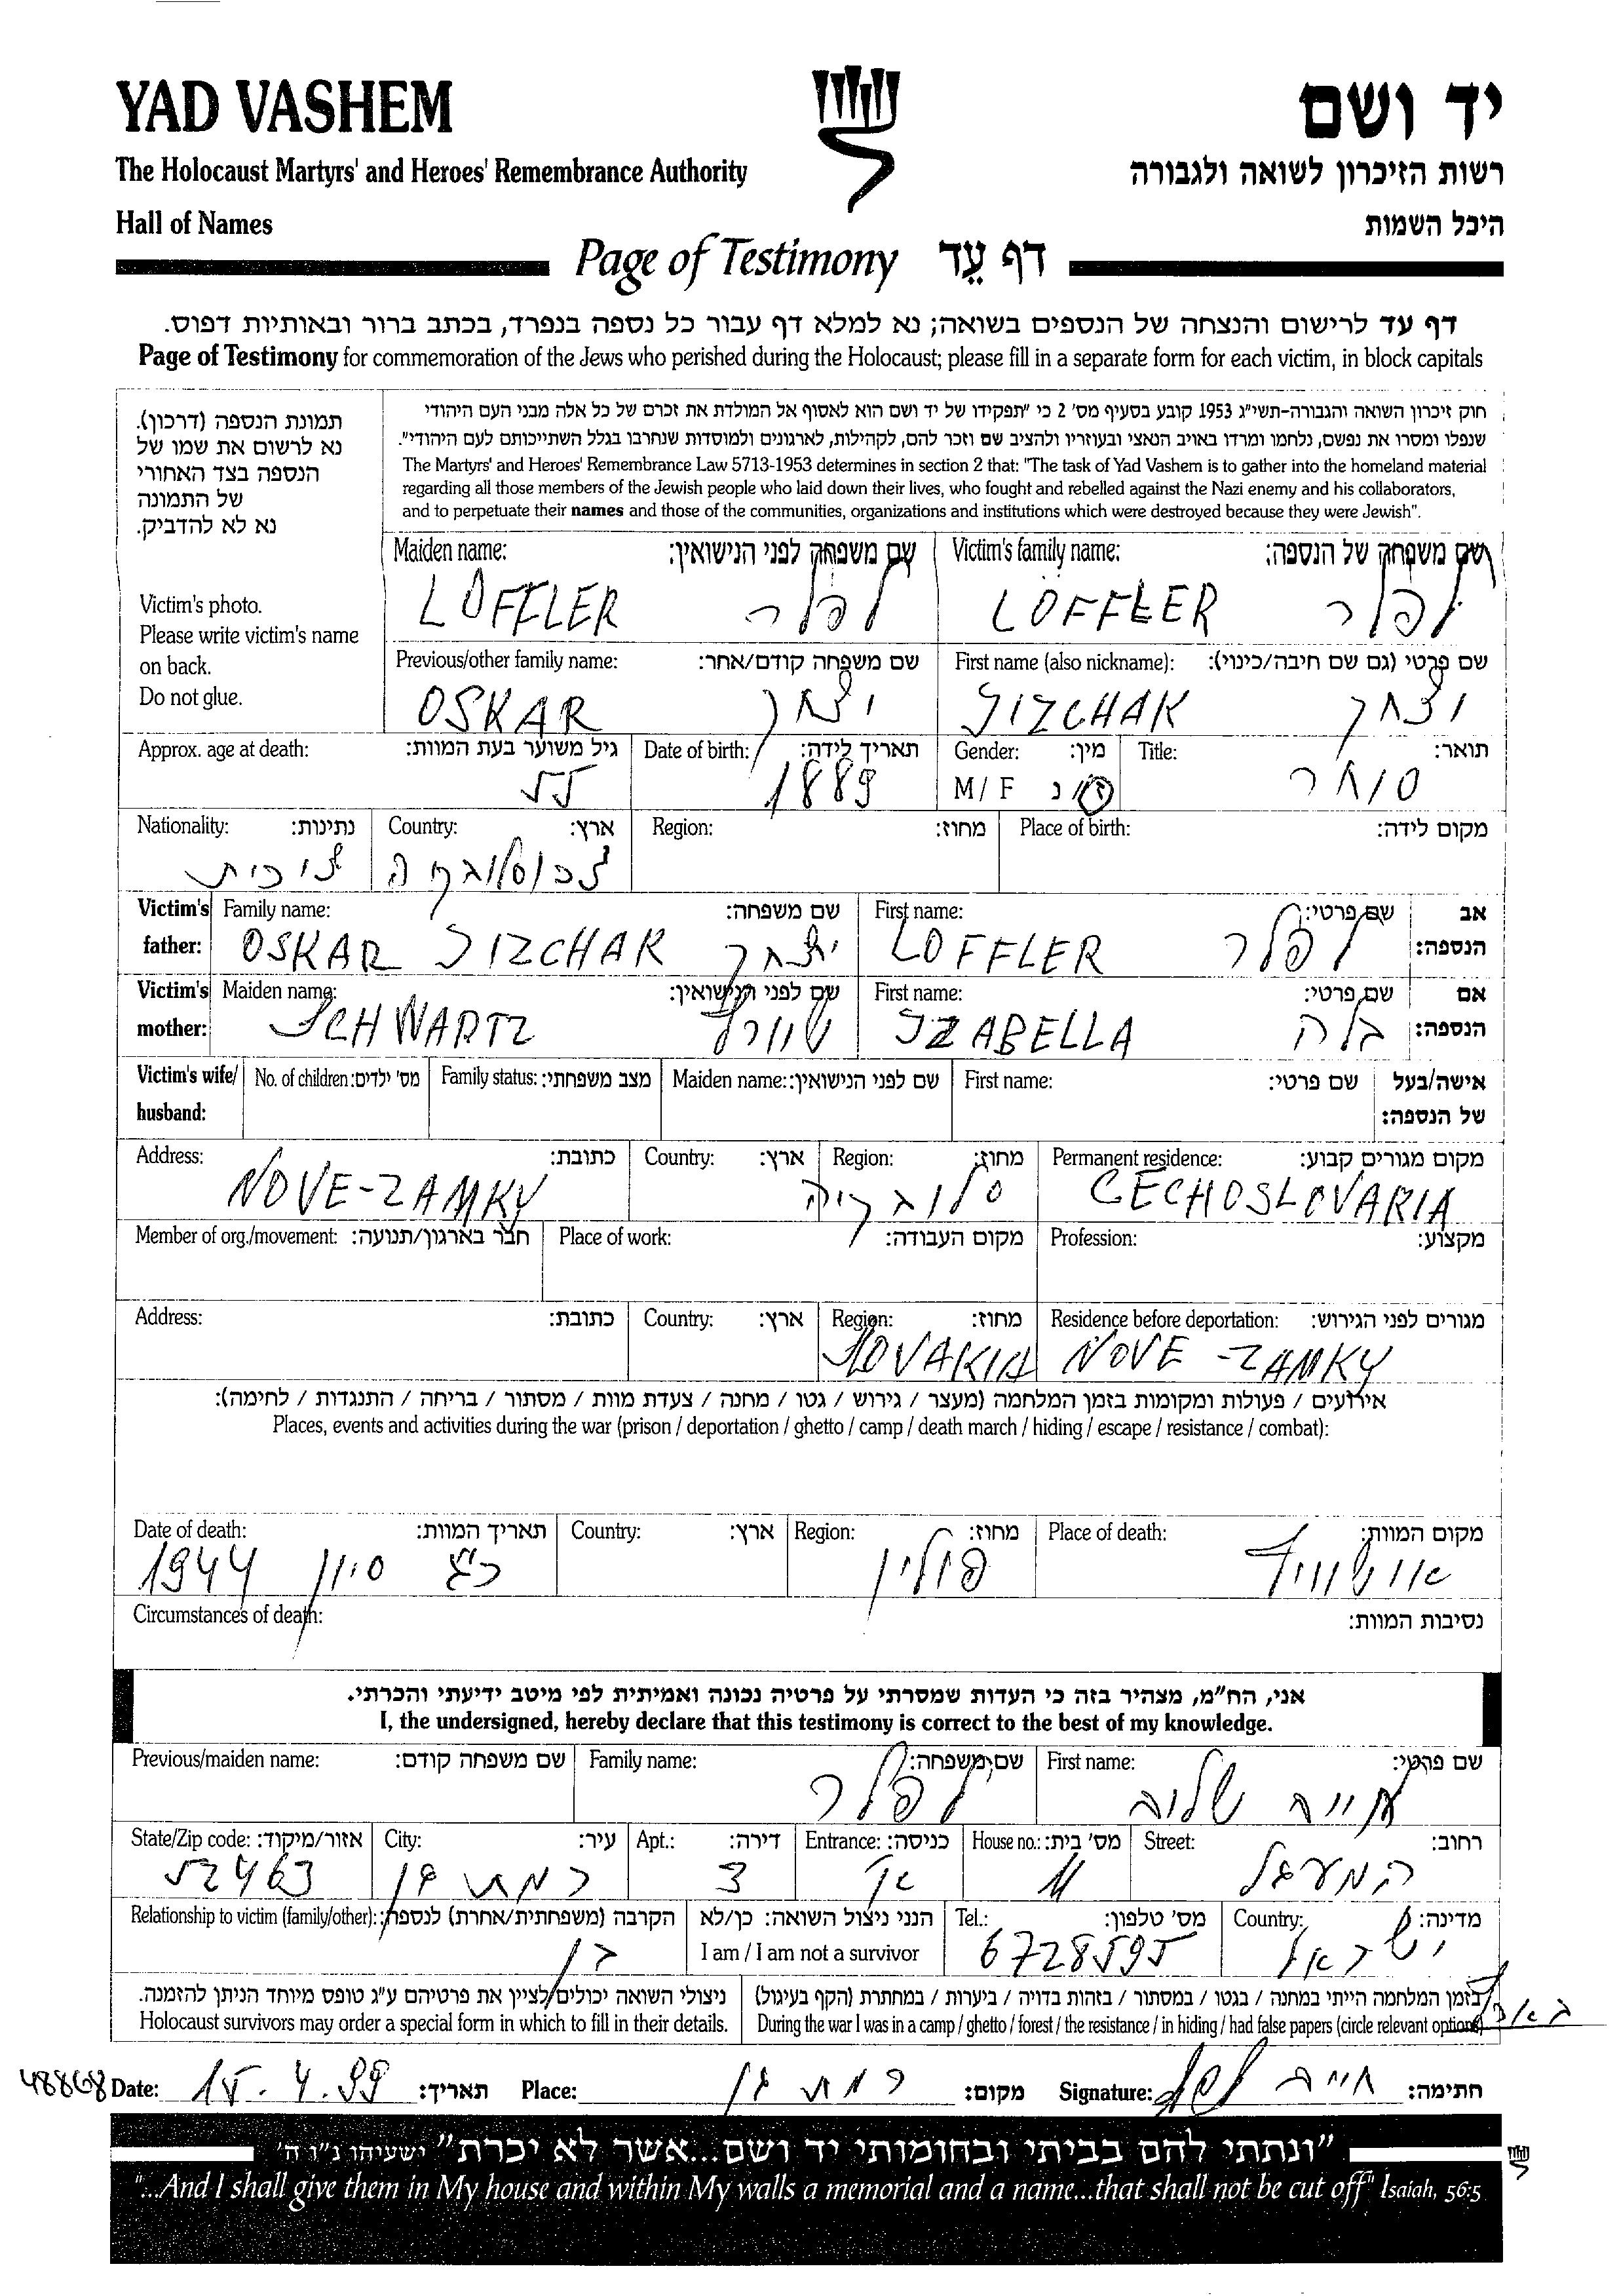 YAD VASHEM
יד ושם
The Holocaust Martyrs' and Heroes' Remembrance Authority
רשות הזיכרון לשואה ולגבורה
Hall of Names
היכל השמות
Page of Testimony דף עֵד
דף עד לרישום והנצחה של הנספים בשואה; נא למלא דף עבור כל נספה בנפרד, בכתב ברור ובאותיות דפוס.
Page of Testimony for commemoration of the Jews who perished during the Holocaust; please fill in a separate form for each victim, in block capitals
תמונת הנספה (דרכון).
נא לרשום את שמו של
הנספה בצד האחורי
של התמונה
נא לא להדביק.
Victim's photo.
Please write victim's name
on back.
Do not glue.
חוק זיכרון השואה והגבורה-תשי"ג 1953 קובע בסעיף מס' 2 כי "תפקידו של יד ושם הוא לאסוף אל המולדת את זכרם של כל אלה מבני העם היהודי
שנפלו ומסרו את נפשם, נלחמו ומרדו באויב הנאצי ובעוזריו ולהציב שם וזכר להם, לקהילות, לארגונים ולמוסדות שנחרבו בגלל השתייכותם לעם היהודי".
The Martyrs' and Heroes' Remembrance Law 5713-1953 determines in section 2 that: "The task of Yad Vashem is to gather into the homeland material
regarding all those members of the Jewish people who laid down their lives, who fought and rebelled against the Nazi enemy and his collaborators,
and to perpetuate their names and those of the communities, organizations and institutions which were destroyed because they were Jewish".
Maiden name: שם משפחה לפני הנישואין: Victim's family name: שם משפחה של הנספה:
LÖFFLER לפלר LÖFFLER לפלר
Previous/other family name: שם משפחה קודם/אחר: First name (also nickname): שם פרטי (גם שם חיבה/כינוי):
OSKAR יצחק JIZCHAK יצחק
Approx. age at death: גיל משוער בעת המוות: Date of birth: תאריך לידה: Gender: מין: Title: תואר:
55 1889 M / F ז / נ סוחר
Nationality: נתינות: Country: ארץ: Region: מחוז: Place of birth: מקום לידה:
צ'כית צכוסלובקיה
Victim's father: Family name: שם משפחה: First name: שם פרטי: אב הנספה:
OSKAR JIZCHAK יצחק LÖFFLER לפלר
Victim's mother: Maiden name: שם לפני הנישואין: First name: שם פרטי: אם הנספה:
SCHWARTZ שוורץ IZABELLA בלה
Victim's wife/ husband: No. of children: מס' ילדים: Family status: מצב משפחתי: Maiden name: שם לפני הנישואין: First name: שם פרטי: אישה/בעל של הנספה:
Address: כתובת: Country: ארץ: Region: מחוז: Permanent residence: מקום מגורים קבוע:
NOVE-ZAMKY סלובקיה CECHOSLOVAKIA
Member of org./movement: חבר בארגון/תנועה: Place of work: מקום העבודה: Profession: מקצוע:
Address: כתובת: Country: ארץ: Region: מחוז: Residence before deportation: מגורים לפני הגירוש:
SLOVAKIA NOVE-ZAMKY
אירועים / פעולות ומקומות בזמן המלחמה (מעצר / גירוש / גטו / מחנה / צעדת מוות / מסתור / בריחה / התנגדות / לחימה):
Places, events and activities during the war (prison / deportation / ghetto / camp / death march / hiding / escape / resistance / combat):
Date of death: תאריך המוות: Country: ארץ: Region: מחוז: Place of death: מקום המוות:
1944 סיון פולין אושוויץ
Circumstances of death: נסיבות המוות:
אני, הח"מ, מצהיר בזה כי העדות שמסרתי על פרטיה נכונה ואמיתית לפי מיטב ידיעתי והכרתי.
I, the undersigned, hereby declare that this testimony is correct to the best of my knowledge.
Previous/maiden name: שם משפחה קודם: Family name: שם משפחה: First name: שם פרטי:
לפלר
State/Zip code: אזור/מיקוד: City: עיר: Apt.: דירה: Entrance: כניסה: House no.: מס' בית: Street: רחוב:
52463 רמת גן 3 א' 11 המעגל
Relationship to victim (family/other): הקרבה (משפחתית/אחרת) לנספה: הנני ניצול השואה: כן/לא Tel.: מס' טלפון: Country: מדינה:
בן I am / I am not a survivor 6728595 ישראל
ניצולי השואה יכולים לציין את פרטיהם ע"ג טופס מיוחד הניתן להזמנה.
Holocaust survivors may order a special form in which to fill in their details.
בזמן המלחמה הייתי במחנה / בגטו / במסתור / בזהות בדויה / ביערות / במחתרת (הקף בעיגול)
During the war I was in a camp / ghetto / forest / the resistance / in hiding / had false papers (circle relevant option)
48868 Date: 15.4.99 תאריך: Place: רמת גן מקום: Signature: חתימה:
"ונתתי להם בביתי ובחומותי יד ושם...אשר לא יכרת" ישעיהו נ"ו ה'
"...And I shall give them in My house and within My walls a memorial and a name...that shall not be cut off" Isaiah, 56:5